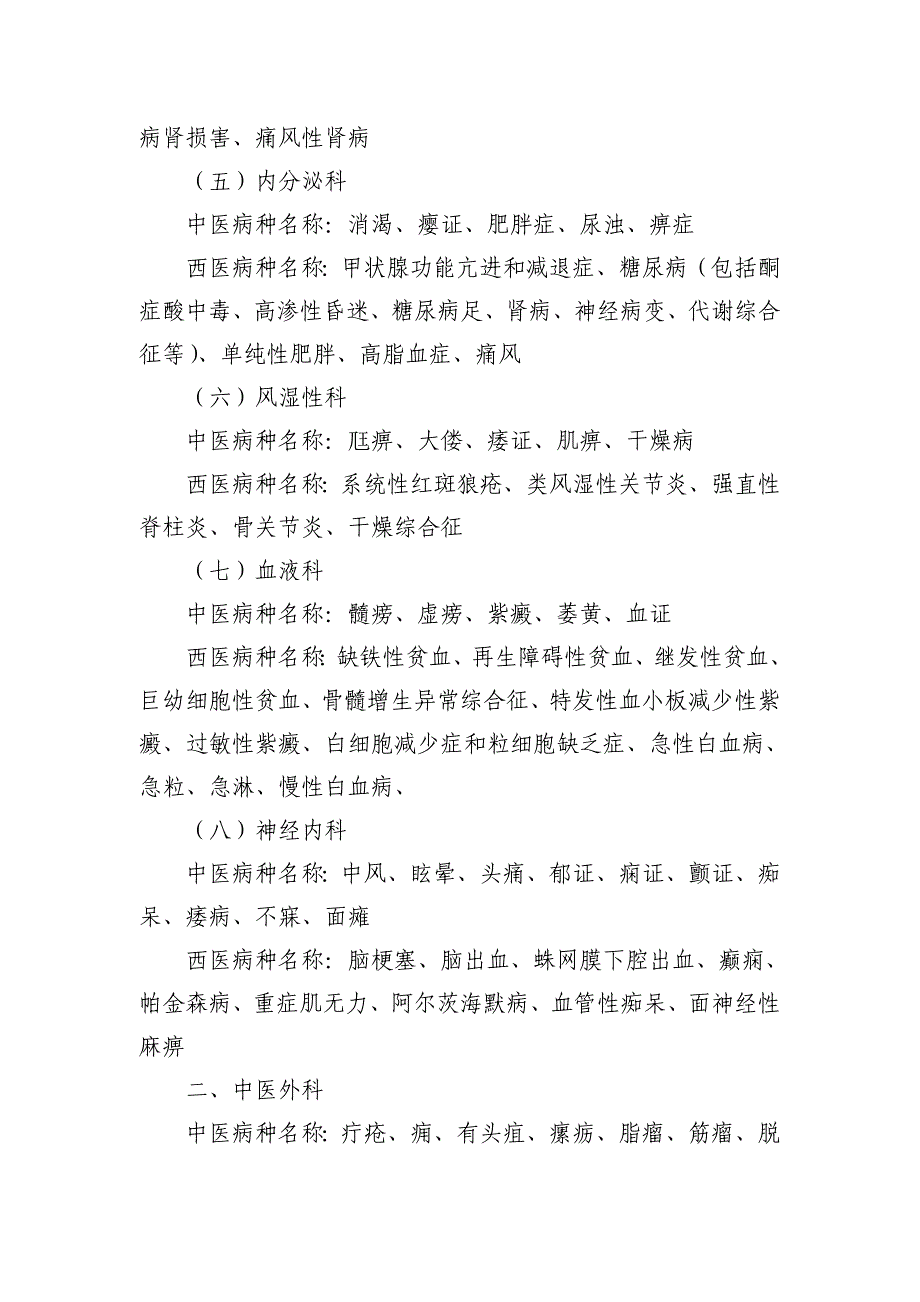 病肾损害、痛风性肾病
（五）内分泌科
中医病种名称：消渴、瘿证、肥胖症、尿浊、痹症
西医病种名称：甲状腺功能亢进和减退症、糖尿病（包括酮
症酸中毒、高渗性昏迷、糖尿病足、肾病、神经病变、代谢综合
征等）、单纯性肥胖、高脂血症、痛风
（六）风湿性科
中医病种名称：尪痹、大偻、痿证、肌痹、干燥病
西医病种名称：系统性红斑狼疮、类风湿性关节炎、强直性
脊柱炎、骨关节炎、干燥综合征
（七）血液科
中医病种名称：髓痨、虚痨、紫癜、萎黄、血证
西医病种名称：缺铁性贫血、再生障碍性贫血、继发性贫血、
巨幼细胞性贫血、骨髓增生异常综合征、特发性血小板减少性紫
癜、过敏性紫癜、白细胞减少症和粒细胞缺乏症、急性白血病、
急粒、急淋、慢性白血病、
（八）神经内科
中医病种名称：中风、眩晕、头痛、郁证、痫证、颤证、痴
呆、痿病、不寐、面瘫
西医病种名称：脑梗塞、脑出血、蛛网膜下腔出血、癫痫、
帕金森病、重症肌无力、阿尔茨海默病、血管性痴呆、面神经性
麻痹
二、中医外科
中医病种名称：疔疮、痈、有头疽、瘰疬、脂瘤、筋瘤、脱